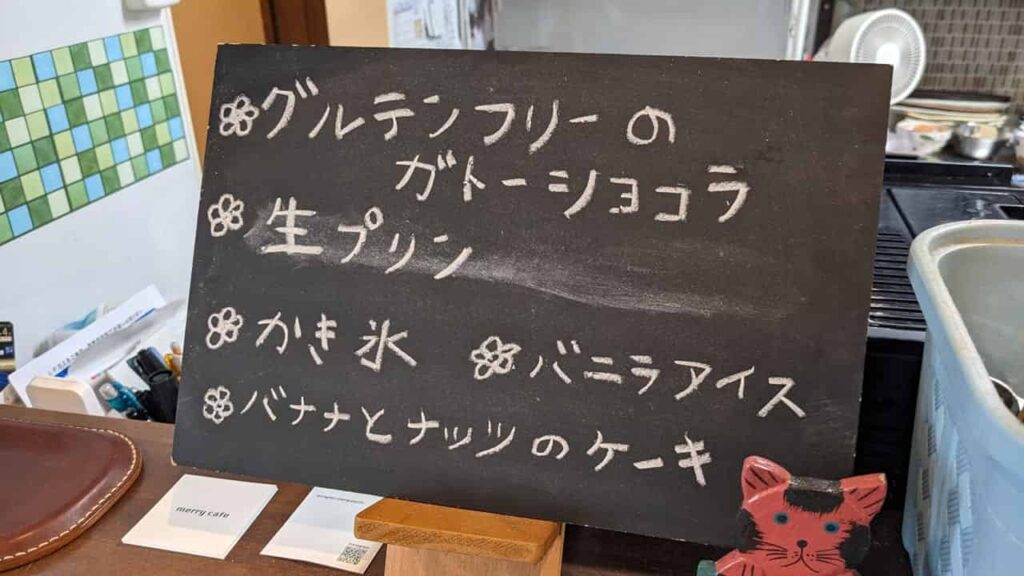 グルテンフリーの
ガトーショコラ
生プリン
かき氷 バニラアイス
バナナとナッツのケーキ
merry cafe